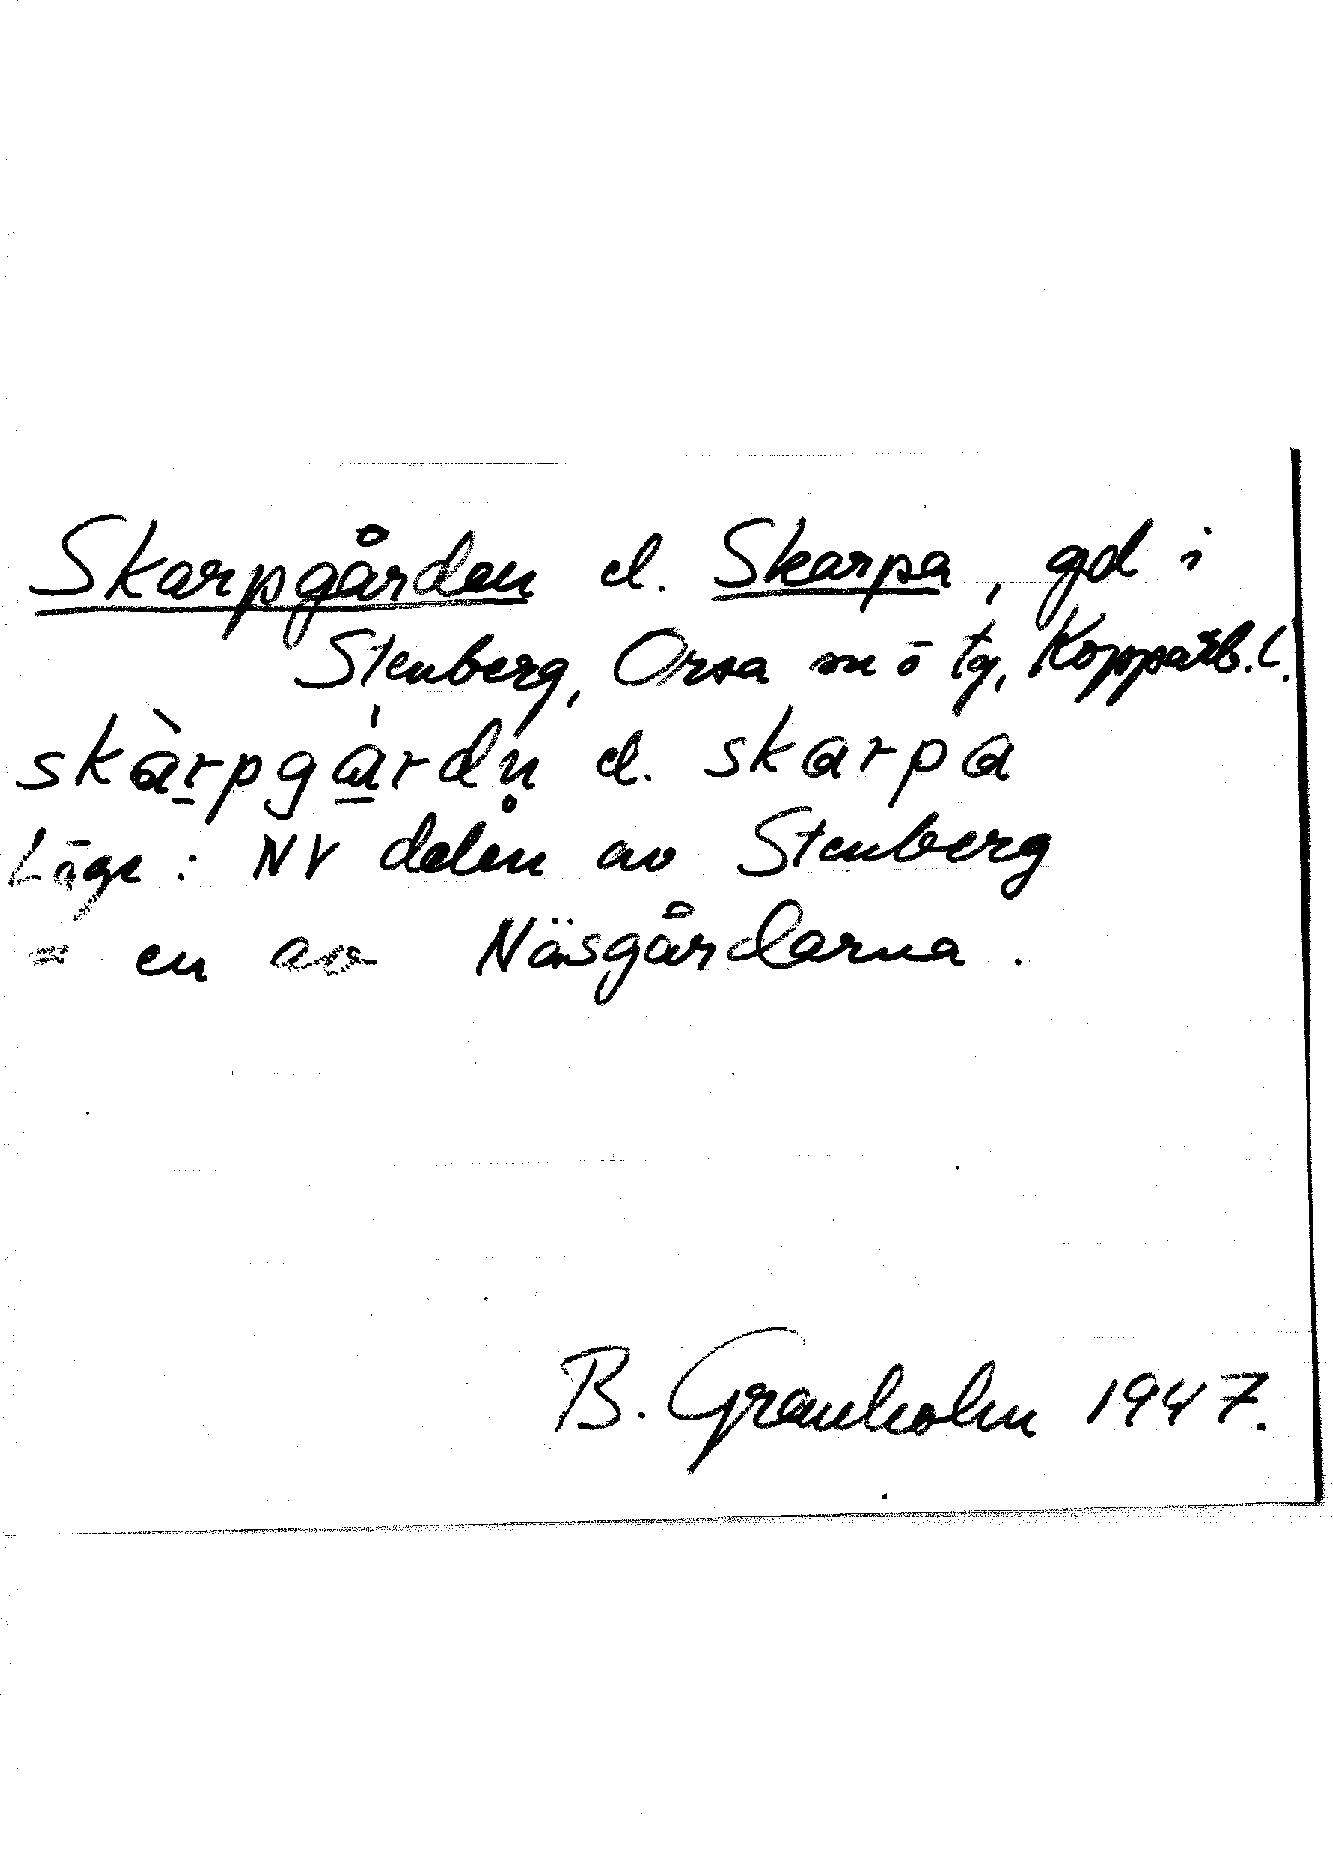 Skarpgården el. Skarpa, gd i
Stenberg, Orsa sn ö tg, Kopparb. l.
skàrpgárdn̥ el. skarpa
Läge: NV delen av Stenberg
= en av Näsgårdarna.
B. Granholm 1947.